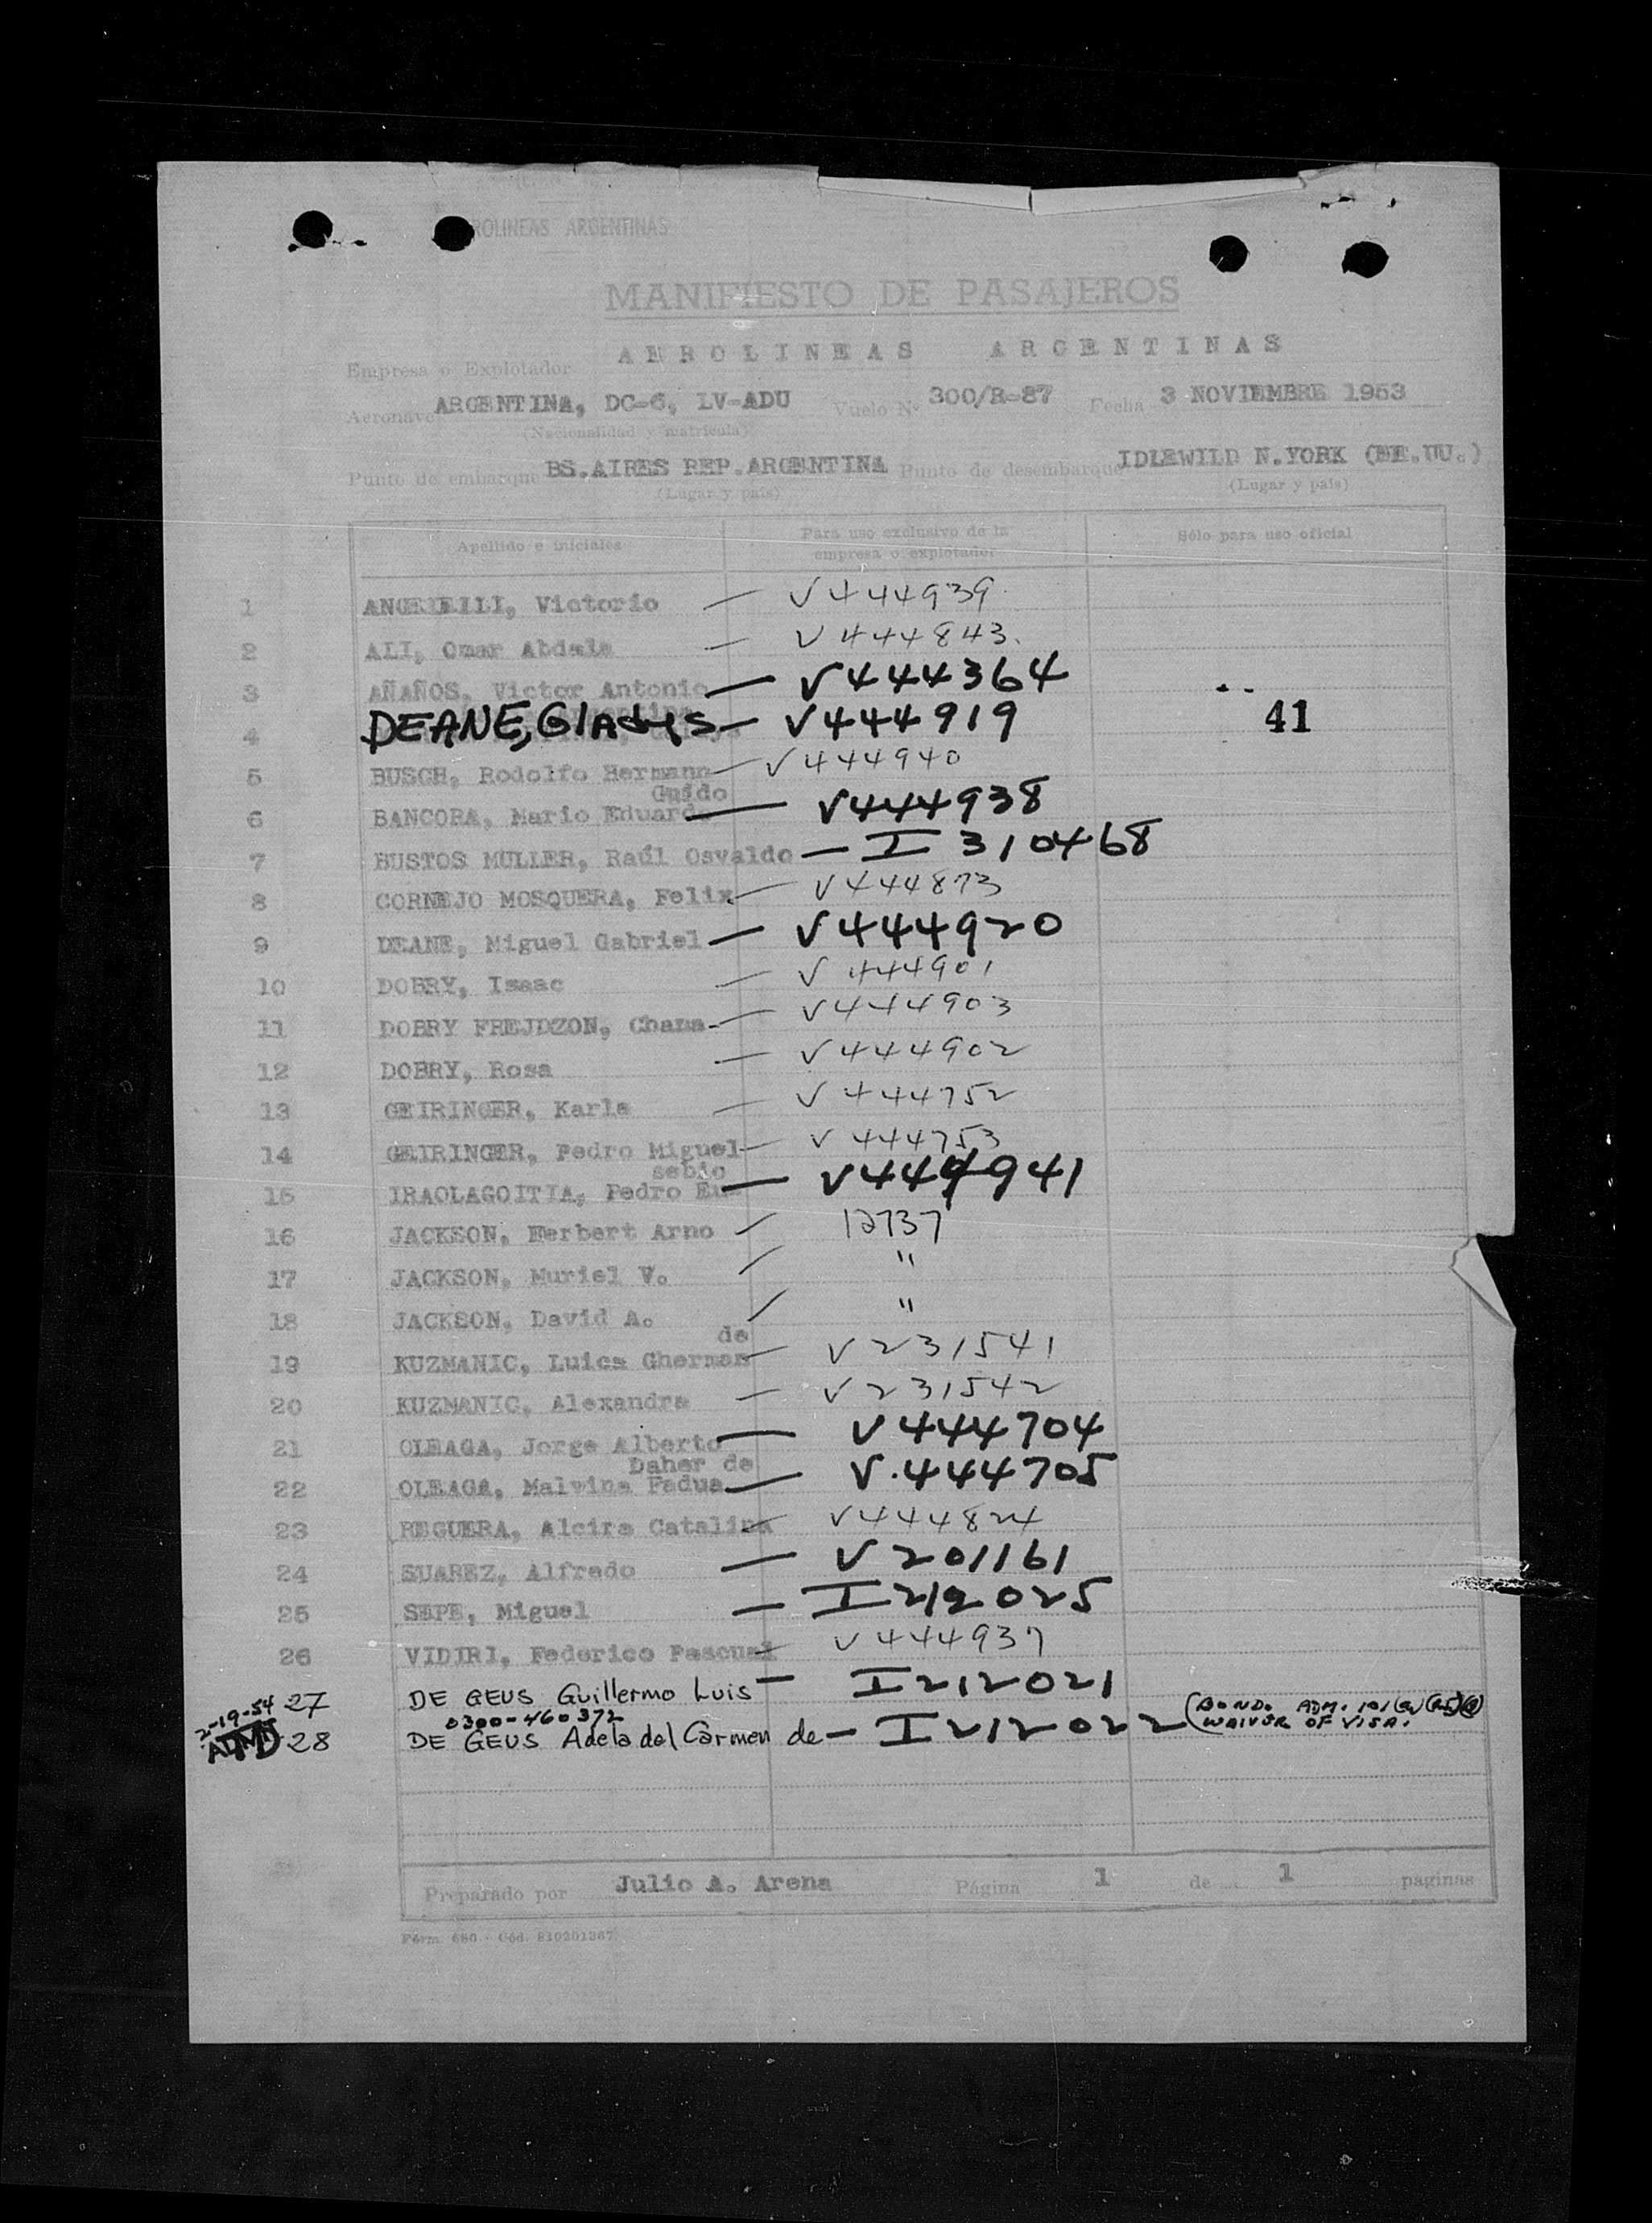 AROLINEAS ARGENTINAS
MANIFIESTO DE PASAJEROS
Empresa o Explotador AEROLINEAS ARGENTINAS
Aeronave ARGENTINA, DC-6, LV-ADU Vuelo Nº 300/R-87 Fecha 3 NOVIEMBRE 1953
(Nacionalidad y matrícula)
Punto de embarque BS.AIRES REP.ARGENTINA Punto de desembarque IDLEWILD N.YORK (EE.UU.)
(Lugar y país) (Lugar y país)
Apellido e iniciales Para uso exclusivo de la empresa o explotador Sólo para uso oficial
1 Victorio — V444939
2 ALI, Omar Abdala — V444843.
3 AÑAÑOS, Victor Antonio — V444364
4 DEANE, Gladys — V444919 41
5 BUSCH, Rodolfo Hermann — V444940
Guido
6 BANCORA, Mario Eduardo — V444938
7 BUSTOS MULLER, Raúl Osvaldo — I 310468
8 CORNEJO MOSQUERA, Felix — V444873
9 DEANE, Miguel Gabriel — V444920
10 DOBRY, Isaac — V444901
11 DOBRY FREJDZON, Chana — V444903
12 DOBRY, Rosa — V444902
13 GEIRINGER, Karla — V444752
14 GEIRINGER, Pedro Miguel — V444753
sebio
15 IRAOLAGOITIA, Pedro Eu- — V444941
16 JACKSON, Herbert Arno / 12737
17 JACKSON, Muriel V. / "
18 JACKSON, David A. / "
de
19 KUZMANIC, Luica Gherman — V231541
20 KUZMANIC, Alexandra — V231542
21 OLEAGA, Jorge Alberto — V444704
Daher de
22 OLEAGA, Malvina Fadua — V.444705
23 REGUERA, Alcira Catalina — V444824
24 SUAREZ, Alfredo — V201161
25 SEPE, Miguel — I212025
26 VIDIRI, Federico Pascual — V444937
27 DE GEUS Guillermo Luis — I212021
2-19-54 0300-460372 (BOND. ADM. 101(a)(15)(B)
ADMD 28 DE GEUS Adela del Carmen de — I212022 WAIVER OF VISA.
Preparado por Julio A. Arena Página 1 de 1 paginas
Fórm. 680 - Cód. 810201367